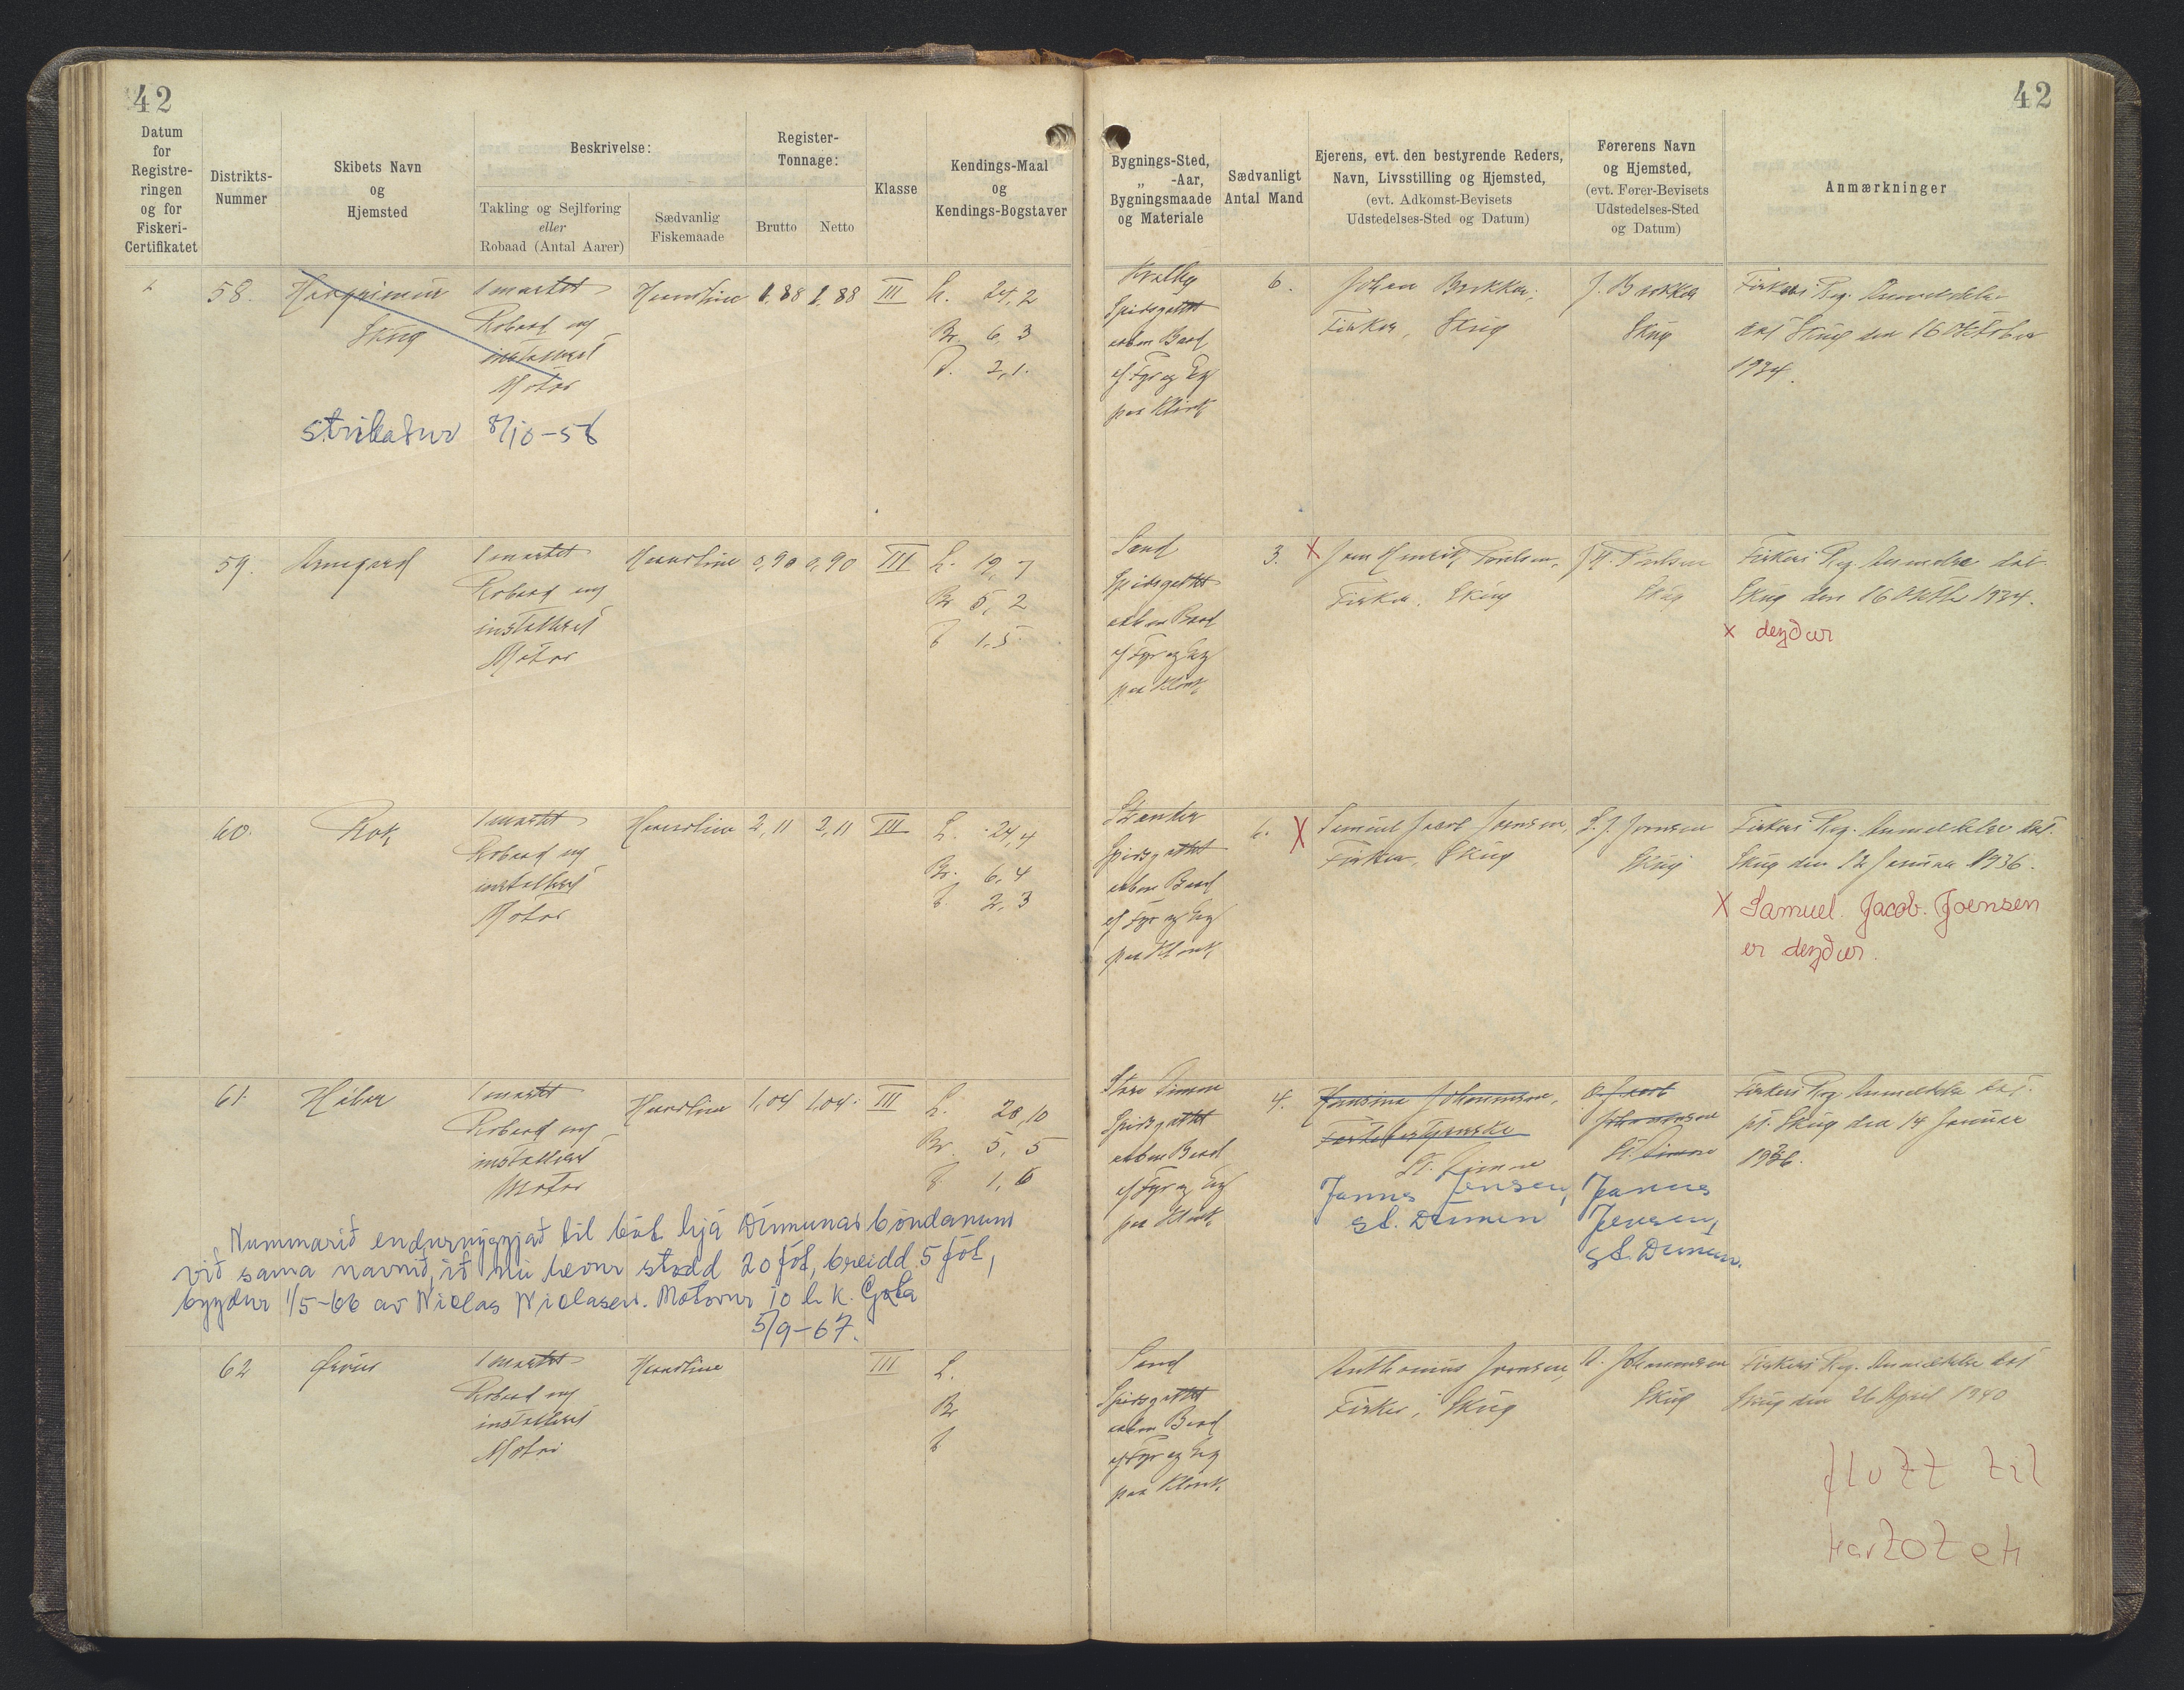 42
42
Datum
for
Registre-
ringen
og for
Fiskeri-
Certifikatet
Distrikts-
Nummer
Skibets Navn
og
Hjemsted
Beskrivelse:
Takling og Sejlføring
eller
Robaad (Antal Aarer)
Sædvanlig
Fiskemaade
Register-
Tonnage:
Brutto
Netto
Klasse
Kendings-Maal
og
Kendings-Bogstaver
Bygnings-Sted,
„ -Aar,
Bygningsmaade
og Materiale
Sædvanligt
Antal Mand
Ejerens, evt. den bestyrende Reders,
Navn, Livsstilling og Hjemsted,
(evt. Adkomst-Bevisets
Udstedelses-Sted og Datum)
Førerens Navn
og Hjemsted,
(evt. Fører-Bevisets
Udstedelses-Sted
og Datum)
Anmærkninger
58.
Skúg
1 mastet
Robaad og
installeret
Motor
Haandline
1,88
1,88
III
L. 24,2
Br. 6,3
D. 2,1
Spidsgattet
aaben Baad
af Fyr og Eg
paa Klink
6.
Fisker, Skúg
Skúg
Fiskeri Reg. Anmeldelse
dat Skúg den 16 Oktober
1934.
strikaður 8/10-56
59.
1 mastet
Robaad og
installeret
Motor
Haandline
0,90
0,90
III
L. 19,7
Br 5,2
D 1,5
Sand
Spidsgattet
aaben Baad
af Fyr og Eg
paa Klink
3.
x
Joen Henrik Poulsen,
Fisker, Skúg
J.H. Poulsen
Skúg
Fiskeri Reg. Anmelse dat
Skúg den 16 Oktb 1934.
x deyður
60.
Rok
1 mastet
Robaad og
installeret
Motor
Haandline
2,11
2,11
III
L. 24,4
Br. 6,4
D 2,3
Spidsgattet
aaben Baad
af Fyr og Eg
paa Klink
6.
X
Samuel Jacob Joensen,
Fisker, Skúg
S. J. Joensen
Skúg
Fiskeri Reg. Anmeldelse dat.
Skúg den 12 Januar 1936.
X Samuel Jacob Joensen
er deyður.
61.
1 mastet
Robaad og
installeret
Motor
Haandline
1,04
1,04
III
L. 20,10
Br. 5,5
D 1,6
Store Dimon
Spidsgattet
aaben Baad
af Fyr og Eg
paa Klink
4.
St. Dimon
Johannesen
St. Dimon
Fiskeri Reg Anmeldelse dat.
pt. Skúg den 14 Januar
1936.
Jannus Jensen,
St. Dimun
Jannus
Jensen,
St. Dimun.
Nummarið endurnýggjað til bát hjá Dímunar bóndanum
við sama navnið, ið nú hevur stødd 20 fót, breidd 5 fót,
bygdur 1/5-66 av Niclas Niclasen. Motorur 10 h. k. Gøta
5/9-67.
62
1 mastet
Robaad og
installeret
Motor
Haandline
III
L.
Br
D
Sand
Spidsgattet
aaben Baad
af Fyr og Eg
paa Klink
Joensen
Fisker, Skúg
Skúg
Fiskeri Reg. Anmeldelse dat
Skúg den 26 April 1940
flutt til
kartotek